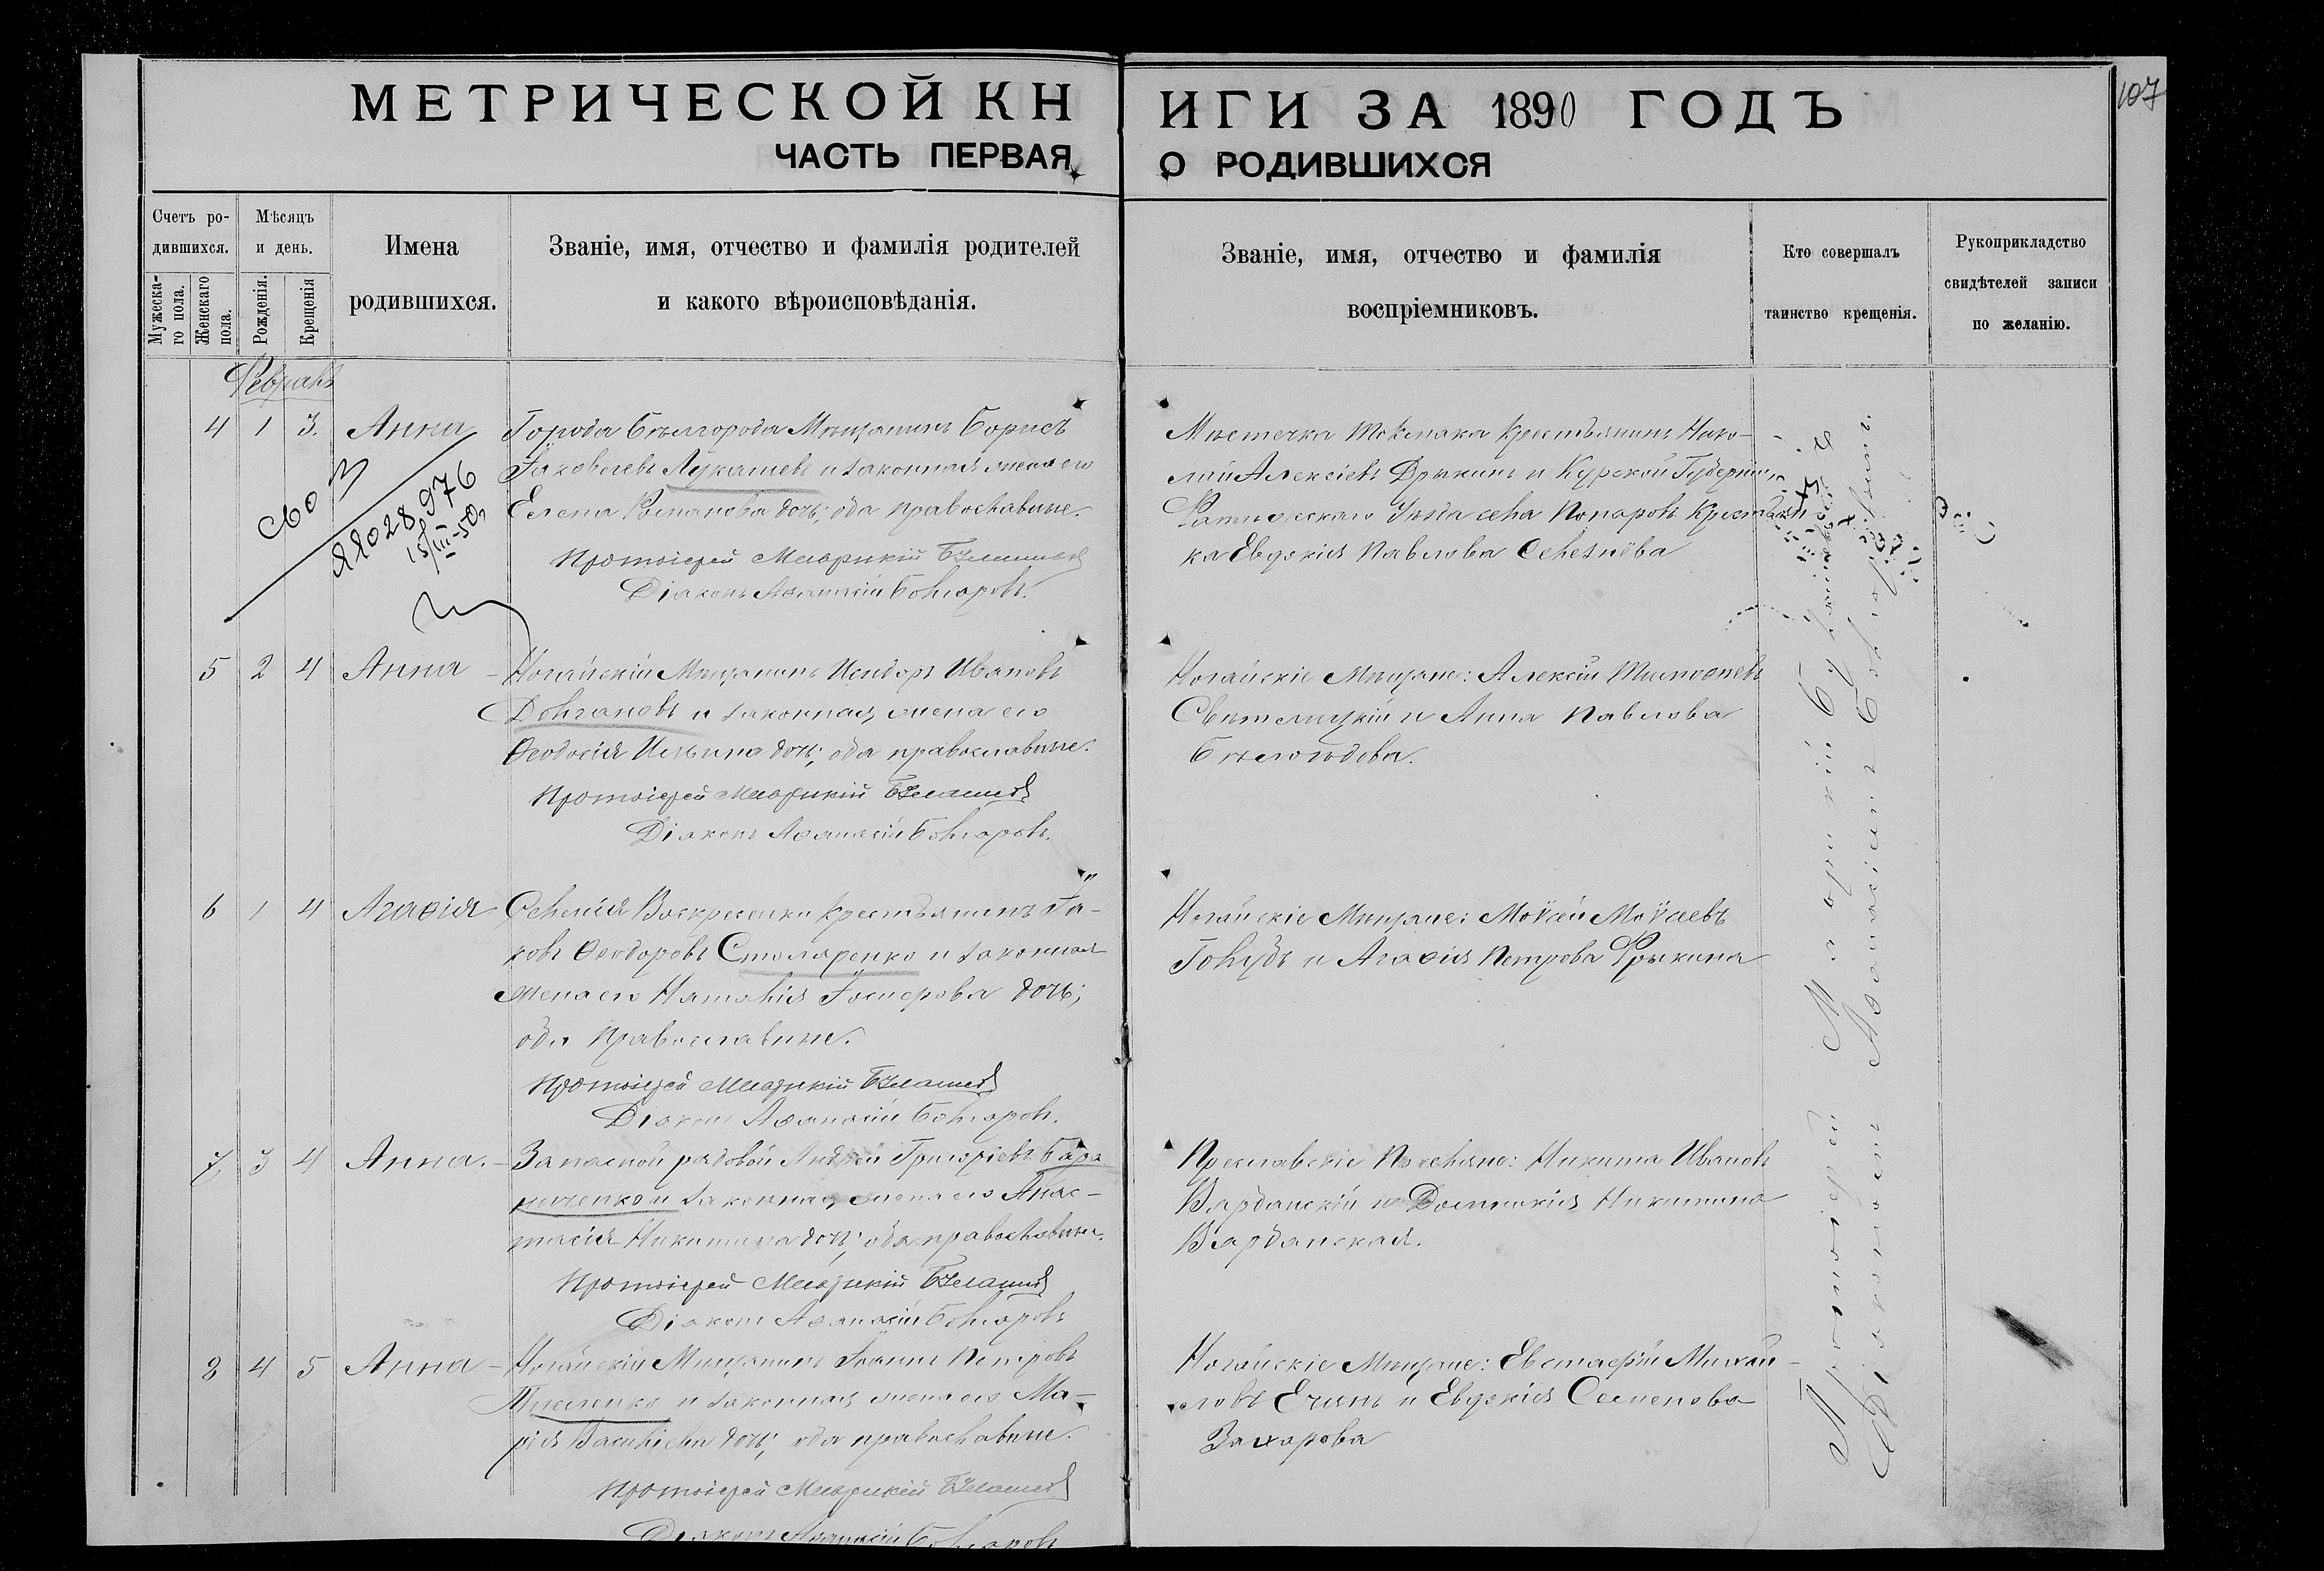 МЕТРИЧЕСКОЙ КНИГИ ЗА 1890 ГОДЪ
107
ЧАСТЬ ПЕРВАЯ, О РОДИВШИХСЯ
Счетъ ро-
дившихся.
Мужеска-
го пола.
Женскаго
пола.
Мѣсяцъ
и день.
Рожденія.
Крещенія
Имена
родившихся.
Званіе, имя, отчество и фамилія родителей
и какого вѣроисповѣданія.
Званіе, имя, отчество и фамилія
воспріемниковъ.
Кто совершалъ
таинство крещенія.
Рукоприкладство
свидѣтелей записи
по желанію.
Февраль
4 1 3. Анна
Города Бѣлгорода Мѣщанинъ Борисъ
Яковлевъ Лукашевъ и законная жена его
Елена Романова дочь; оба православные.
Протоіерей
Діаконъ Аѳанасій Болгаровъ.
Св о
ЯЯ028976
15/III-50
Мѣстечка Токмака Крестьянинъ Нико-
лай Алексіевъ Дрыкинъ и Курской Губерніи
Уѣзда села Крестьян
ка Евдокія Павлова Селезнёва
5 2 4 Анна
Ногайскій Мѣщанинъ Исидоръ Ивановъ
Долгановъ и законная жена его
Ѳеодосія Ильина дочь; оба православные.
Протоіерей
Діаконъ Аѳанасій Болгаровъ.
Ногайскіе Мѣщане: Алексій Тимоѳеевъ
Свѣтлицкій и Анна Павлова
6 1 4 Агаѳія
Селенія Воскресенки Крестьянинъ Iа-
ковъ Ѳеодоровъ Столяренко и законная
жена его Наталія дочь;
оба православные.
Протоіерей
Діаконъ Аѳанасій Болгаровъ.
Ногайскіе Мѣщане: Моѵсей Моѵсеевъ
Голубъ и Агаѳія Петрова Фрыкина
7 3 4 Анна.
Запасной рядовой Андрей Григоріевъ Бара
ниченко и законная жена его Анас-
тасія Никитина дочь; оба православные.
Протоіерей
Діаконъ Аѳанасій Болгаровъ
Преславскіе Поселяне: Никита Ивановъ
Варданскій и Домникія Никитина
Варданская.
8 4 5 Анна
Ногайскій Мѣщанинъ Іоаннъ Петровъ
и законная жена его Ма-
рія Васильева дочь; оба православные.
Протоіерей
Діаконъ Аѳанасій Болгаровъ
Ногайскіе Мѣщане: Евстафій Михаи-
ловъ и Евдокія Семенова
Захарова
Протоіерей
Діакономъ Аѳанасіемъ Болгаровымъ.